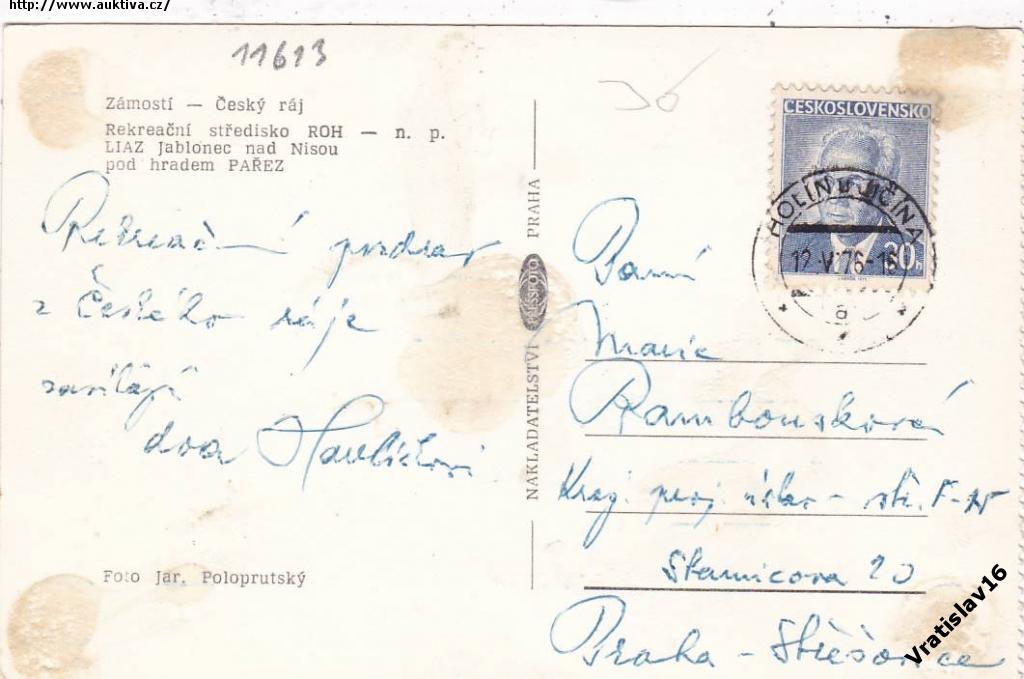 http://www.auktiva.cz/
11613
Zámostí — Český ráj
Rekreační středisko ROH — n. p.
LIAZ Jablonec nad Nisou
pod hradem PAŘEZ
Rekreační pozdrav
z Českého ráje
zasílají
dva Havlíčkovi
Foto Jar. Poloprutský
NAKLADATELSTVÍ PRESSFOTO PRAHA
36
ČESKOSLOVENSKO
30h
HOLÍN u JIČÍNA
12.V.76-16
a
Paní
Marie
Rambousková
Kraj. proj. ústav - stř.
Stamicova 20
Praha - Střešovice
Vratislav16